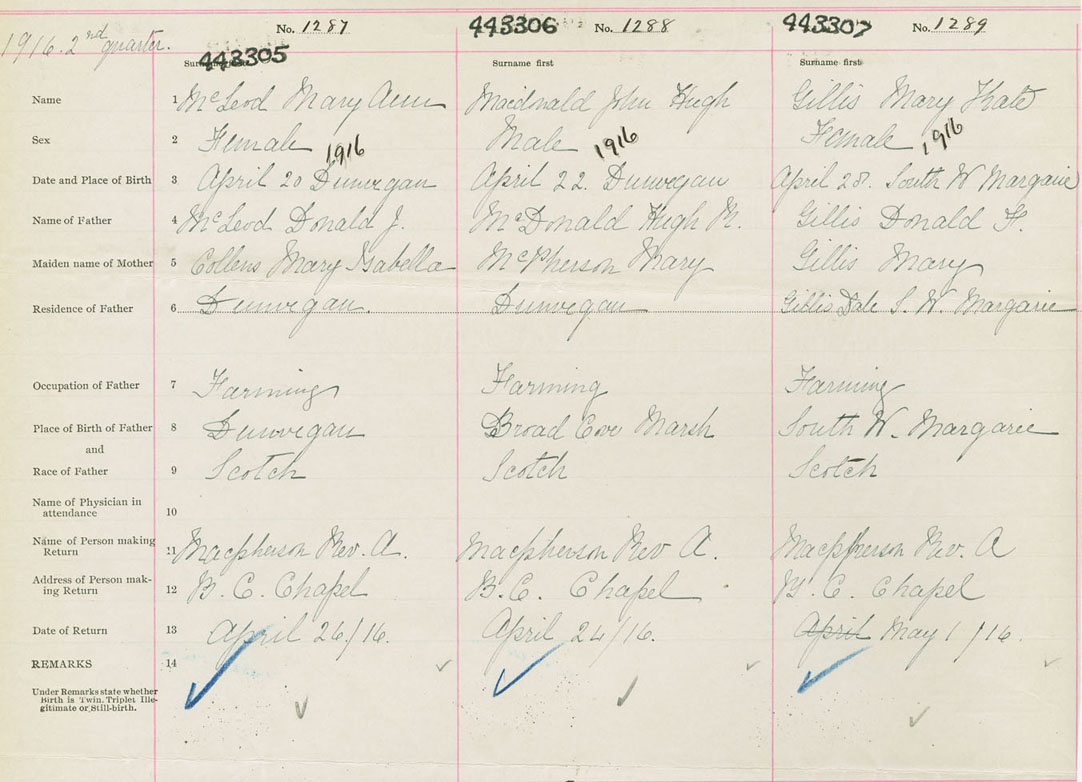 1916. 2nd quarter.
No. 1287 443306 No. 1288 443307 No. 1289
443305
Surname first Surname first Surname first
Name 1 McLeod Mary Ann Macdnald John Hugh Gillis Mary Kate
Sex 2 Female Male Female
1916 1916 1916
Date and Place of Birth 3 April 20 Dunvegan April 22. Dunvegan April 28. South W Margarie
Name of Father 4 McLeod Donald J. McDonald Hugh N. Gillis Donald F.
Maiden name of Mother 5 Collens Mary Isabella McPherson Mary Gillis Mary
Residence of Father 6 Dunvegan. Dunvegan Gillis Dale S. W. Margarie
Occupation of Father 7 Farming Farming Farming
Place of Birth of Father 8 Dunvegan Broad Cove Marsh South W. Margarie
and
Race of Father 9 Scotch Scotch Scotch
Name of Physician in
attendance 10
Name of Person making
Return 11 Macpherson Rev. A. Macpherson Rev A. Macpherson Rev. A
Address of Person mak-
ing Return 12 B. C. Chapel B.C. Chapel B. C. Chapel
Date of Return 13 April 26/16. April 24/16. April May 1/16.
REMARKS 14
Under Remarks state whether
Birth is Twin. Triplet Ille-
gitimate or Still-birth.